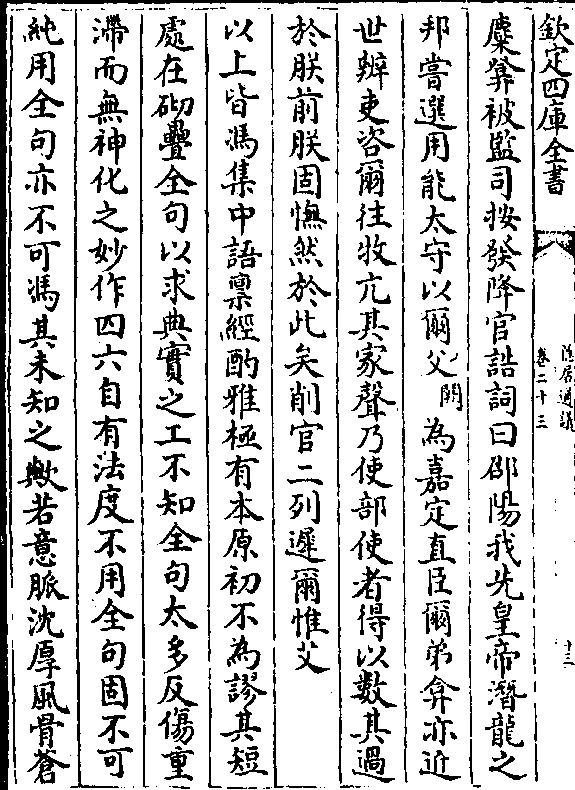 欽定四庫全書
隱居通議
卷二十三
十三
糜弇被監司按發降官誥詞曰邵陽我先皇帝潛龍之
邦嘗選用能太守以爾父闕為嘉定直臣爾弟弇亦近
世辦吏咨爾往牧亢其家聲乃使部使者得以數其過
於朕前朕固憮然於此矣削官二列遲爾惟艾
以上皆馮集中語稟經酌雅極有本原初不為謬其短
處在砌疊全句以求典實之工不知全句太多反傷重
滯而無神化之妙作四六自有法度不用全句固不可
純用全句亦不可馮其未知之歟若意脈沈厚風骨蒼